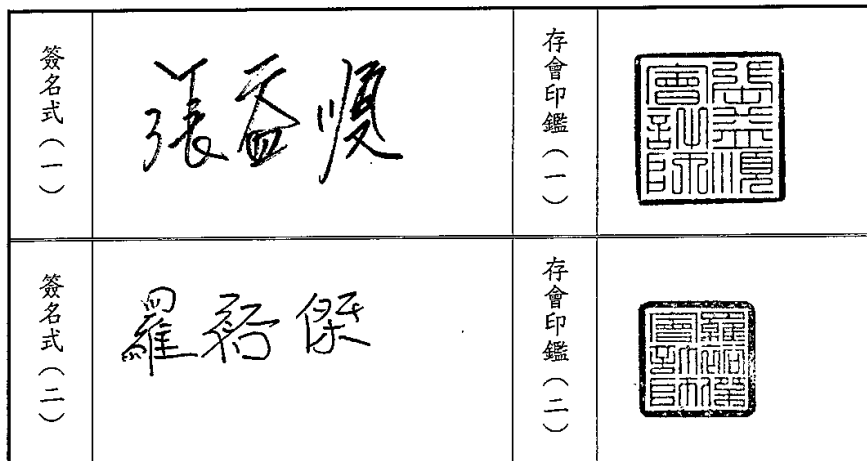 簽名式（一）
張益順
存會印鑑（一）
張益順會計師
簽名式（二）
羅裕傑
存會印鑑（二）
羅裕傑會計師